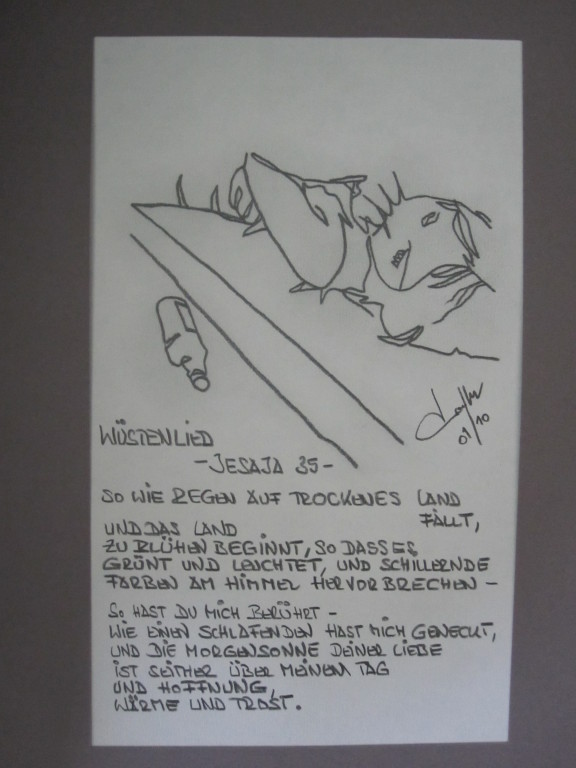 WÜSTENLIED
-JESAJA 35-
SO WIE REGEN AUF TROCKENES LAND
FÄLLT,
UND DAS LAND
ZU BLÜHEN BEGINNT, SO DASS ES
GRÜNT UND LEUCHTET, UND SCHILLERNDE
FARBEN AM HIMMEL HERVORBRECHEN -
SO HAST DU MICH BERÜHRT -
WIE EINEN SCHLAFENDEN HAST MICH GEWECKT,
UND DIE MORGENSONNE DEINER LIEBE
IST SEITHER ÜBER MEINEM TAG
UND HOFFNUNG,
WÄRME UND TROST.
01/10